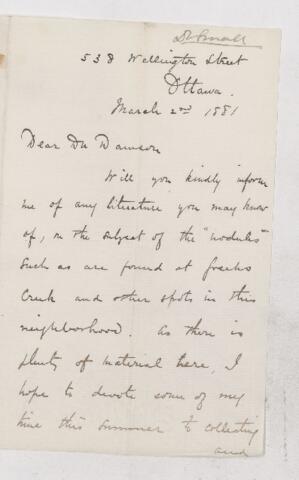 Dr Small
538 Wellington Street
Ottawa.
March 2nd 1881
Dear Dr Dawson
Will you kindly inform
me of any literature you may know
of, on the subject of the "nodules"
such as are found at Greens
Creek and other spots in this
neighborhood. As there is
plenty of material here, I
hope to devote some of my
time this summer to collecting
and